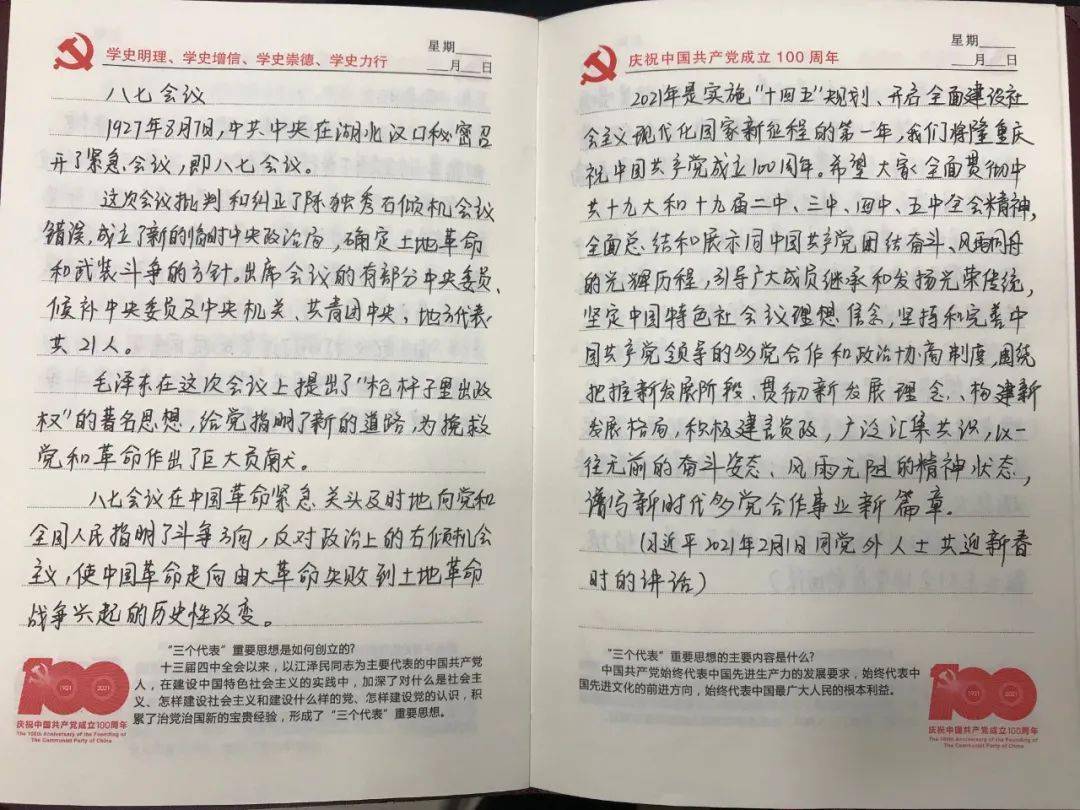 学史明理、学史增信、学史崇德、学史力行
星期
月 日
八七会议
1927年8月7日,中共中央在湖北汉口秘密召
开了紧急会议,即八七会议。
这次会议批判和纠正了陈独秀右倾机会议
错误,成立了新的临时中央政治局,确定土地革命
和武装斗争的方针。出席会议的有部分中央委员、
候补中央委员及中央机关、共青团中央、地方代表
共21人。
毛泽东在这次会议上提出了"枪杆子里出政
权"的著名思想,给党指明了新的道路,为挽救
党和革命作出了巨大贡献。
八七会议在中国革命紧急关头及时地向党和
全国人民指明了斗争方向,反对政治上的右倾机会
主义,使中国革命走向由大革命失败到土地革命
战争兴起的历史性改变。
100
1921 2021
庆祝中国共产党成立100周年
The 100th Anniversary of the Founding of
The Communist Party of China
"三个代表"重要思想是如何创立的?
十三届四中全会以来,以江泽民同志为主要代表的中国共产党
人,在建设中国特色社会主义的实践中,加深了对什么是社会主
义、怎样建设社会主义和建设什么样的党、怎样建设党的认识,积
累了治党治国新的宝贵经验,形成了"三个代表"重要思想。
庆祝中国共产党成立100周年
星期
月 日
2021年是实施"十四五"规划、开启全面建设社
会主义现代化国家新征程的第一年,我们将隆重庆
祝中国共产党成立100周年。希望大家全面贯彻中
共十九大和十九届二中、三中、四中、五中全会精神,
全面总结和展示同中国共产党团结奋斗、风雨同舟
的光辉历程,引导广大成员继承和发扬光荣传统,
坚定中国特色社会议理想信念,坚持和完善中
国共产党领导的多党合作和政治协商制度,围绕
把握新发展阶段、贯彻新发展理念、构建新
发展格局,积极建言资政,广泛汇集共识,以一
往无前的奋斗姿态、风雨无阻的精神状态,
谱写新时代多党合作事业新篇章.
(习近平2021年2月1日同党外人士共迎新春
时的讲话)
"三个代表"重要思想的主要内容是什么?
中国共产党始终代表中国先进生产力的发展要求,始终代表中
国先进文化的前进方向,始终代表中国最广大人民的根本利益。
100
1921 2021
庆祝中国共产党成立100周年
The 100th Anniversary of the Founding of
The Communist Party of China